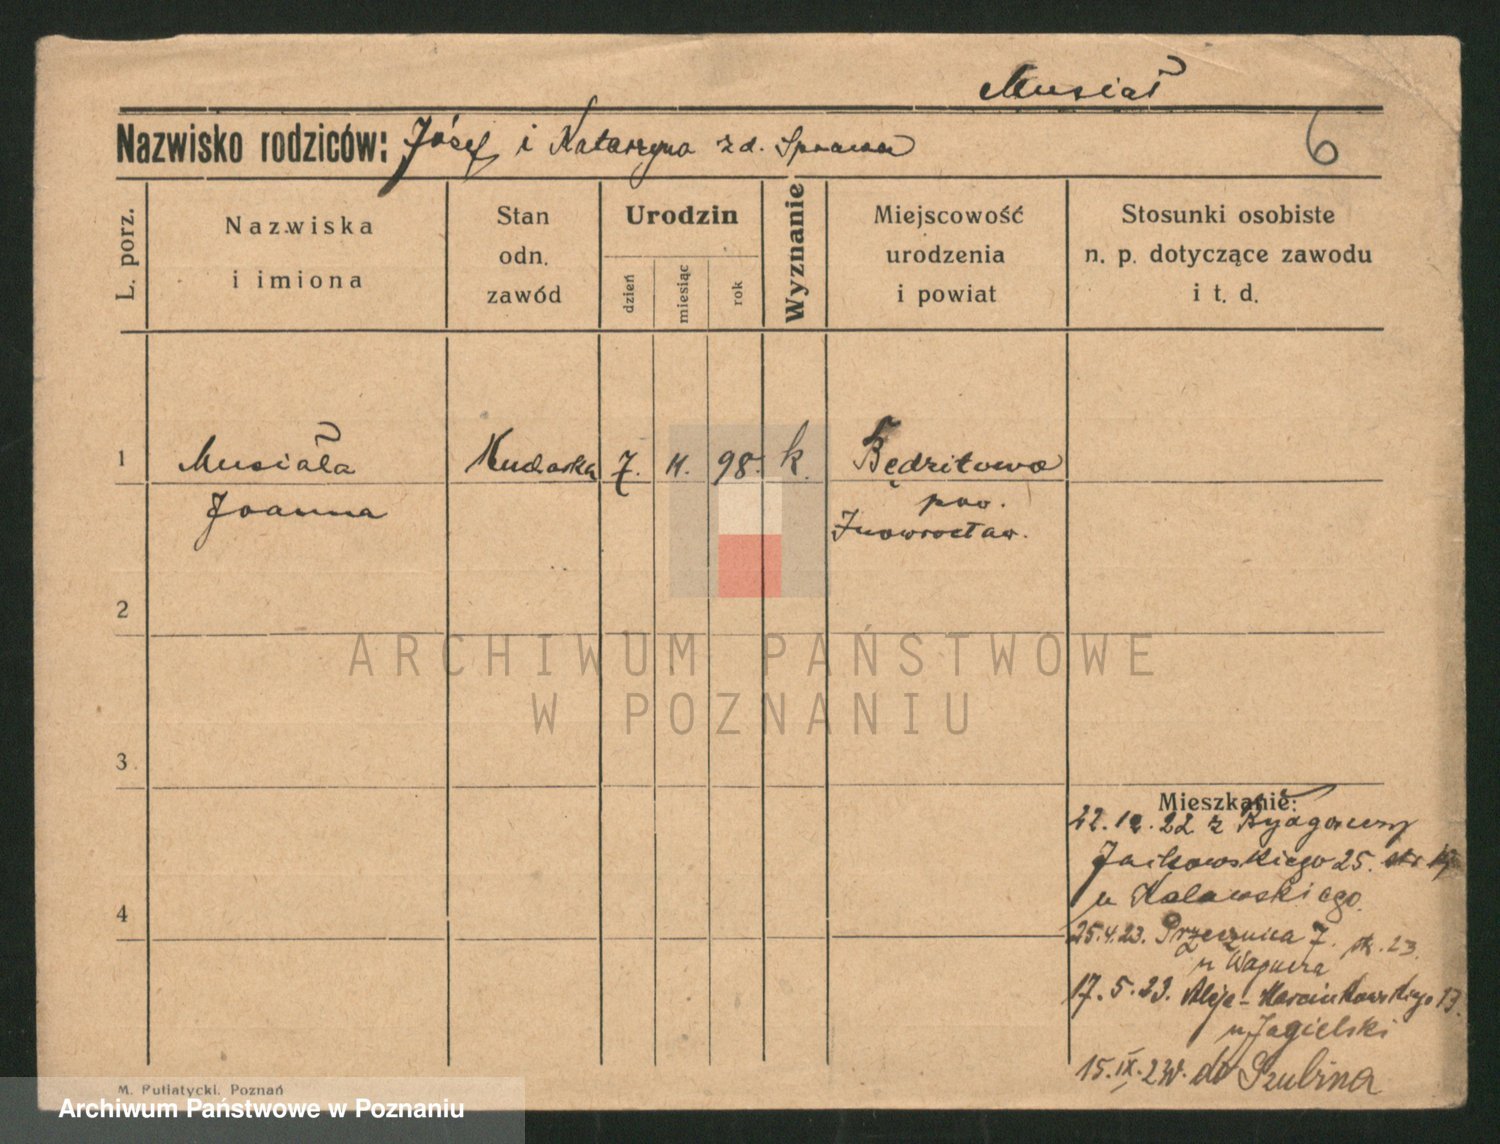 Musiał
Nazwisko rodziców: Józef i Katarzyna z d.
6
L. porz.
Nazwiska
i imiona
Stan
odn.
zawód
Urodzin
dzień
miesiąc
rok
Wyznanie
Miejscowość
urodzenia
i powiat
Stosunki osobiste
n. p. dotyczące zawodu
i t. d.
1 Musiała Kucharka 7. 11. 98. k. Będzitowo
Joanna pow.
Inowrocław.
2
ARCHIWUM PAŃSTWOWE
W POZNANIU
3
Mieszkanie:
22. 12. 22 z Bydgoszczy
Jackowskiego 25.
u Kalawskiego.
4
25.4.23. Przecznica 7.
u Wagnera
17. 5. 23. Aleje-Marcinkowskiego 13.
u Jagielski
15. IX. 23 W. do Szubina
M. Putiatycki, Poznań
Archiwum Państwowe w Poznaniu